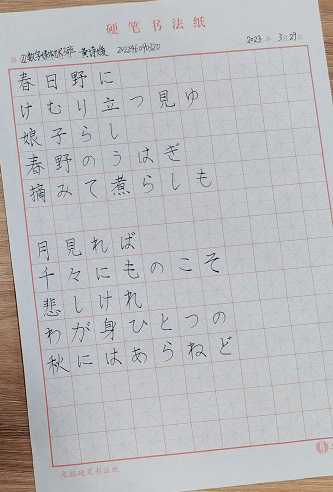 硬笔书法纸
202246040320
2023 年 3月29日
春日野に
けむり立つ見ゆ
娘子らし
春野のうはぎ
摘みて煮らしも
月見れば
千々にものこそ
悲しけれ
わが身ひとつの
秋にはあらねど
米格硬笔书法纸